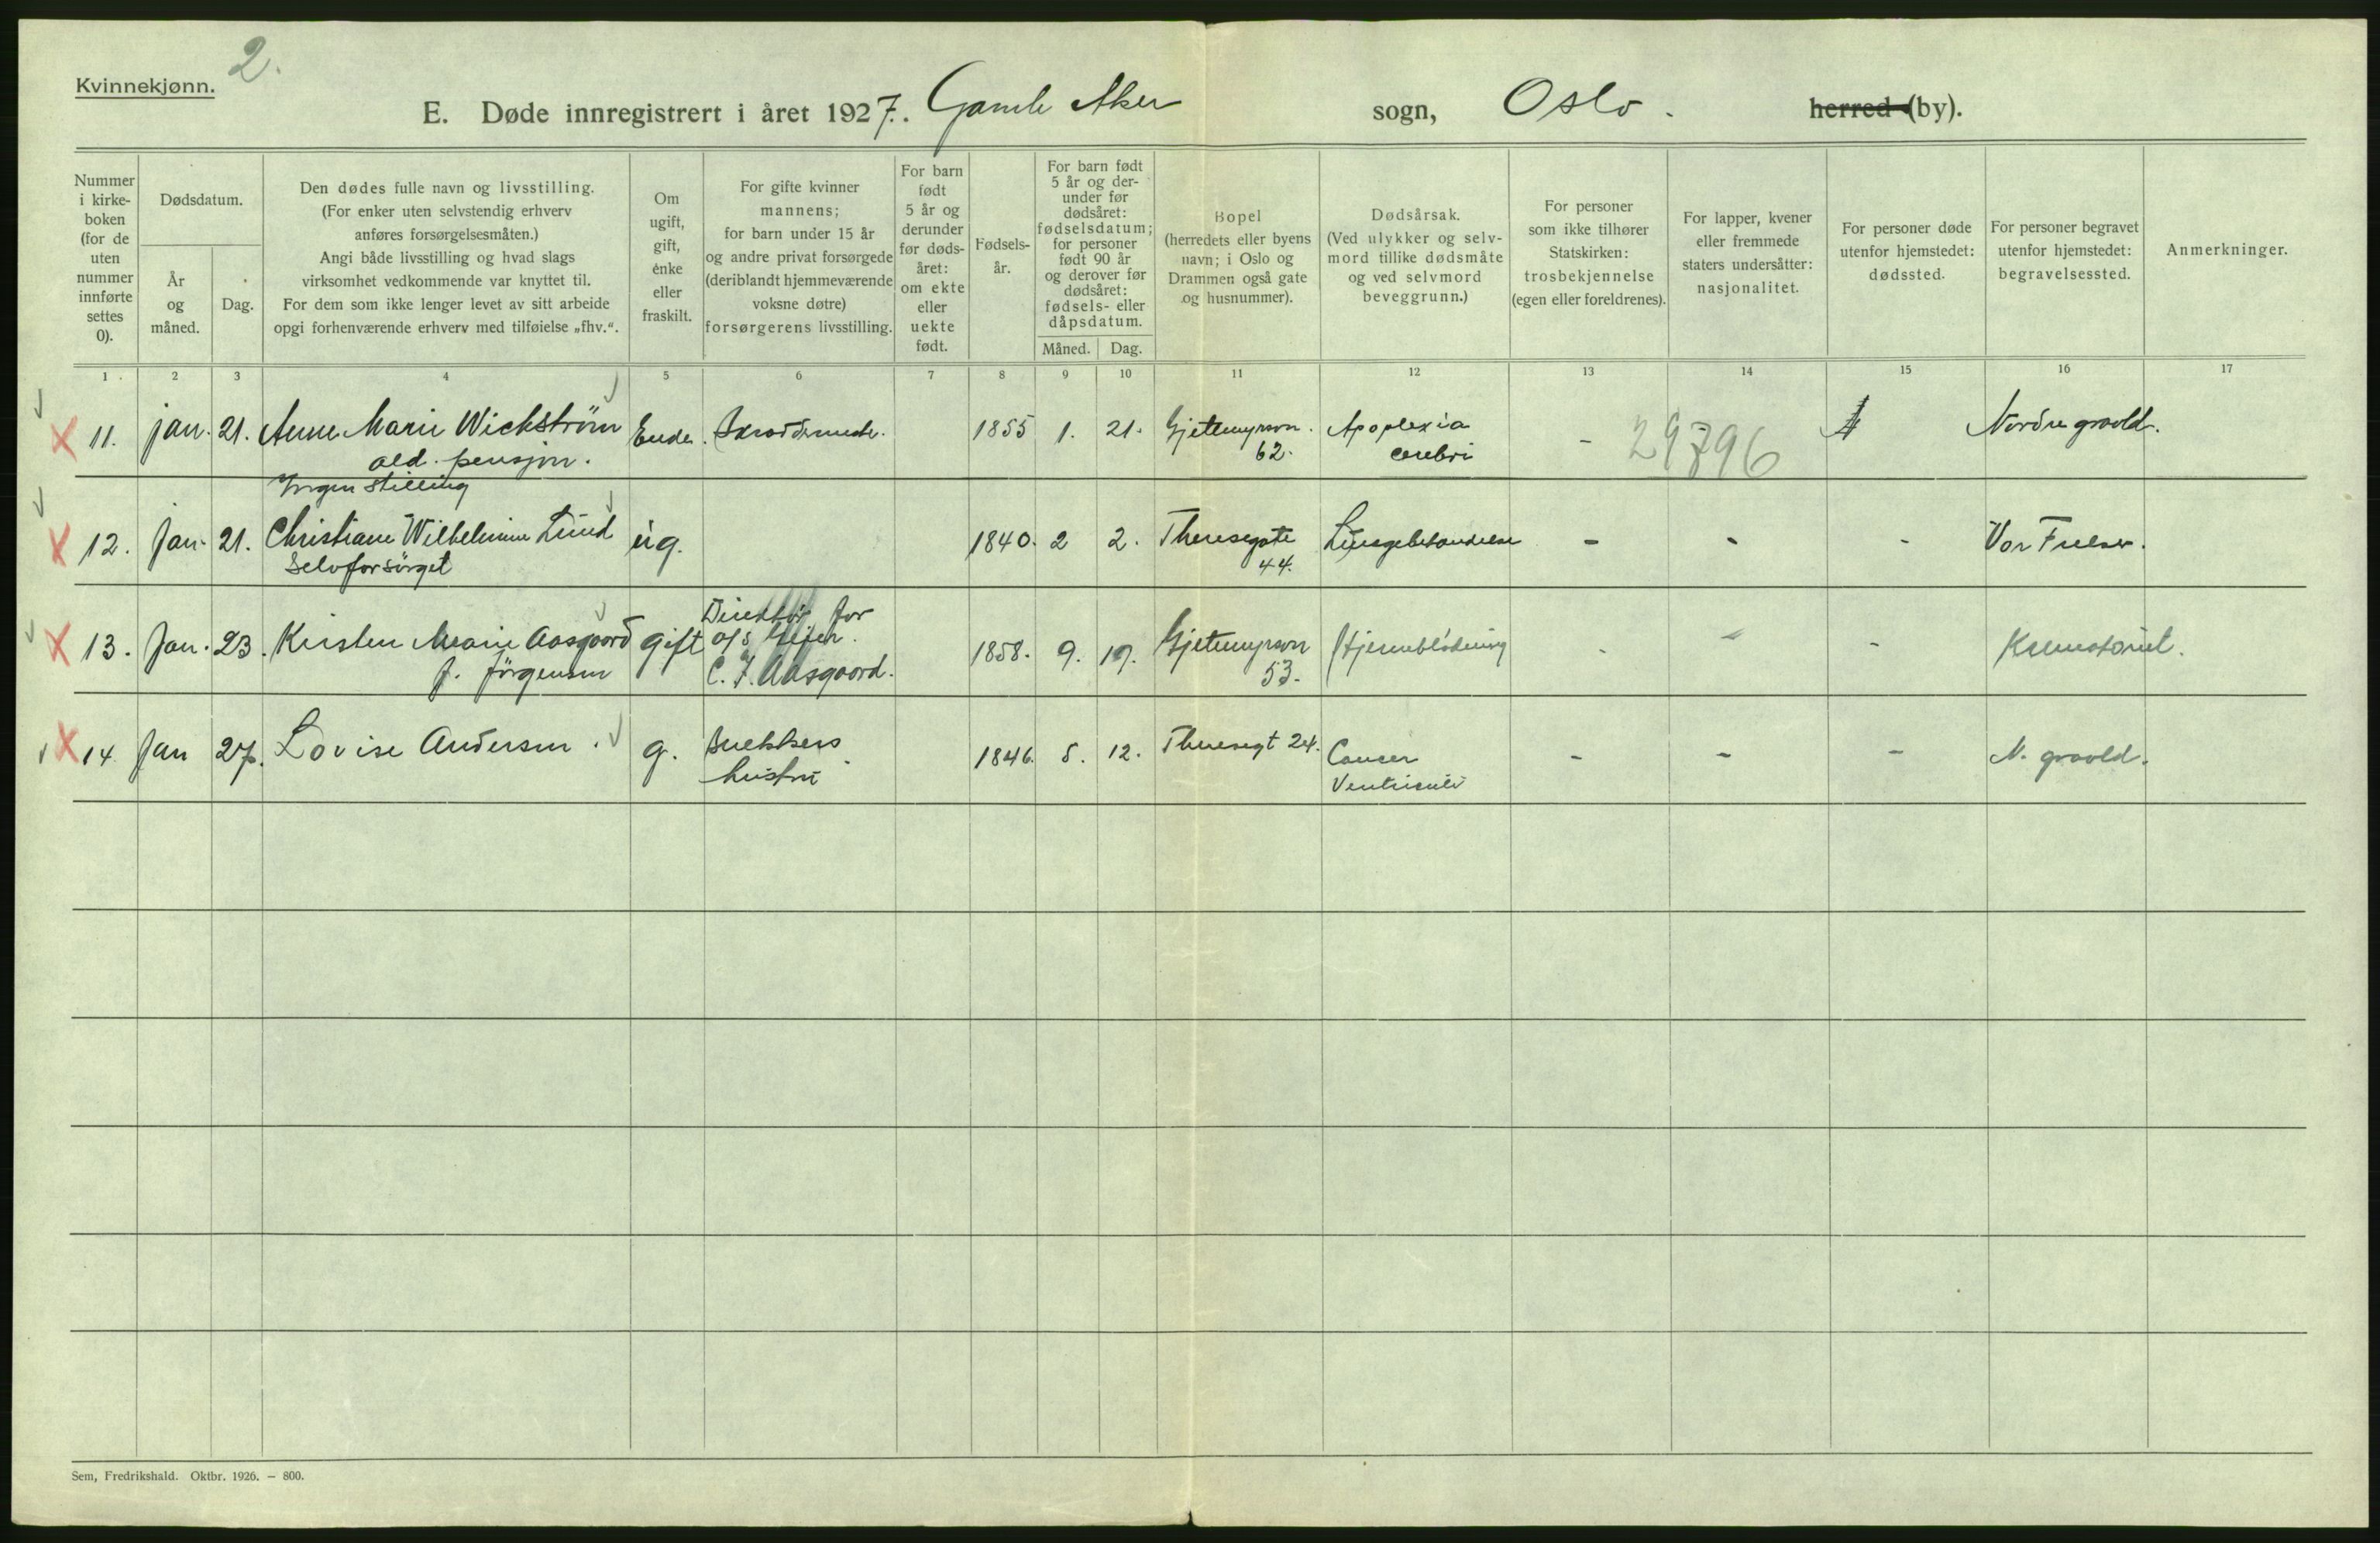 Kvinnekjønn.
2.
E. Døde innregistrert i året 1927. Gamle Aker sogn, Oslo. herred (by).
Nummer i kirkeboken (for de uten nummer innførte settes 0).
Dødsdatum.
År og måned.
Dag.
Den dødes fulle navn og livsstilling.
(For enker uten selvstendig erhverv
anføres forsørgelsesmåten.)
Angi både livsstilling og hvad slags
virksomhet vedkommende var knyttet til.
For dem som ikke lenger levet av sitt arbeide
opgi forhenværende erhverv med tilføielse „fhv.“.
Om ugift, gift, enke eller fraskilt.
For gifte kvinner
mannens;
for barn under 15 år
og andre privat forsørgede
(deriblandt hjemmeværende
voksne døtre)
forsørgerens livsstilling.
For barn født 5 år og derunder før dødsåret: om ekte eller uekte født.
Fødselsår.
For barn født 5 år og derunder før dødsåret: fødselsdatum; for personer født 90 år og derover før dødsåret: fødsels- eller dåpsdatum.
Måned. Dag.
Bopel
(herredets eller byens
navn; i Oslo og
Drammen også gate
og husnummer).
Dødsårsak.
(Ved ulykker og selvmord tillike dødsmåte
og ved selvmord
beveggrunn.)
For personer
som ikke tilhører
Statskirken:
trosbekjennelse
(egen eller foreldrenes).
For lapper, kvener
eller fremmede
staters undersåtter:
nasjonalitet.
For personer døde
utenfor hjemstedet:
dødssted.
For personer begravet
utenfor hjemstedet:
begravelsessted.
Anmerkninger.
1 2 3 4 5 6 7 8 9 10 11 12 13 14 15 16 17
11. jan. 21. Anne Marie Wickstrøm Enke. 1855 1. 21. Gjetemyrsvn. Apoplexia - 29796 Nordre gravld.
ald. pensjon. 62. cerebri
Ingen stilling
12. Jan. 21. Christiane Wilhelmine Lund ug. 1840. 2 2. Theresegate Lungebetændelse - - - Vor Frelser.
Selvforsørget 44.
13. Jan. 23. Kirsten Marie Aasgaard gift Direktør for 1858. 9. 19. Gjetemyrsvn Hjerneblødning - - - Krematoriet.
f. Jörgensen C. J. Aasgaard. 53.
14. Jan 27. Lovise Andersen. g. Snekkers 1846. 5. 12. Theresegt 24. Cancer - - - N. gravld.
hustru Ventriculi
Sem, Fredrikshald. Oktbr. 1926. — 800.